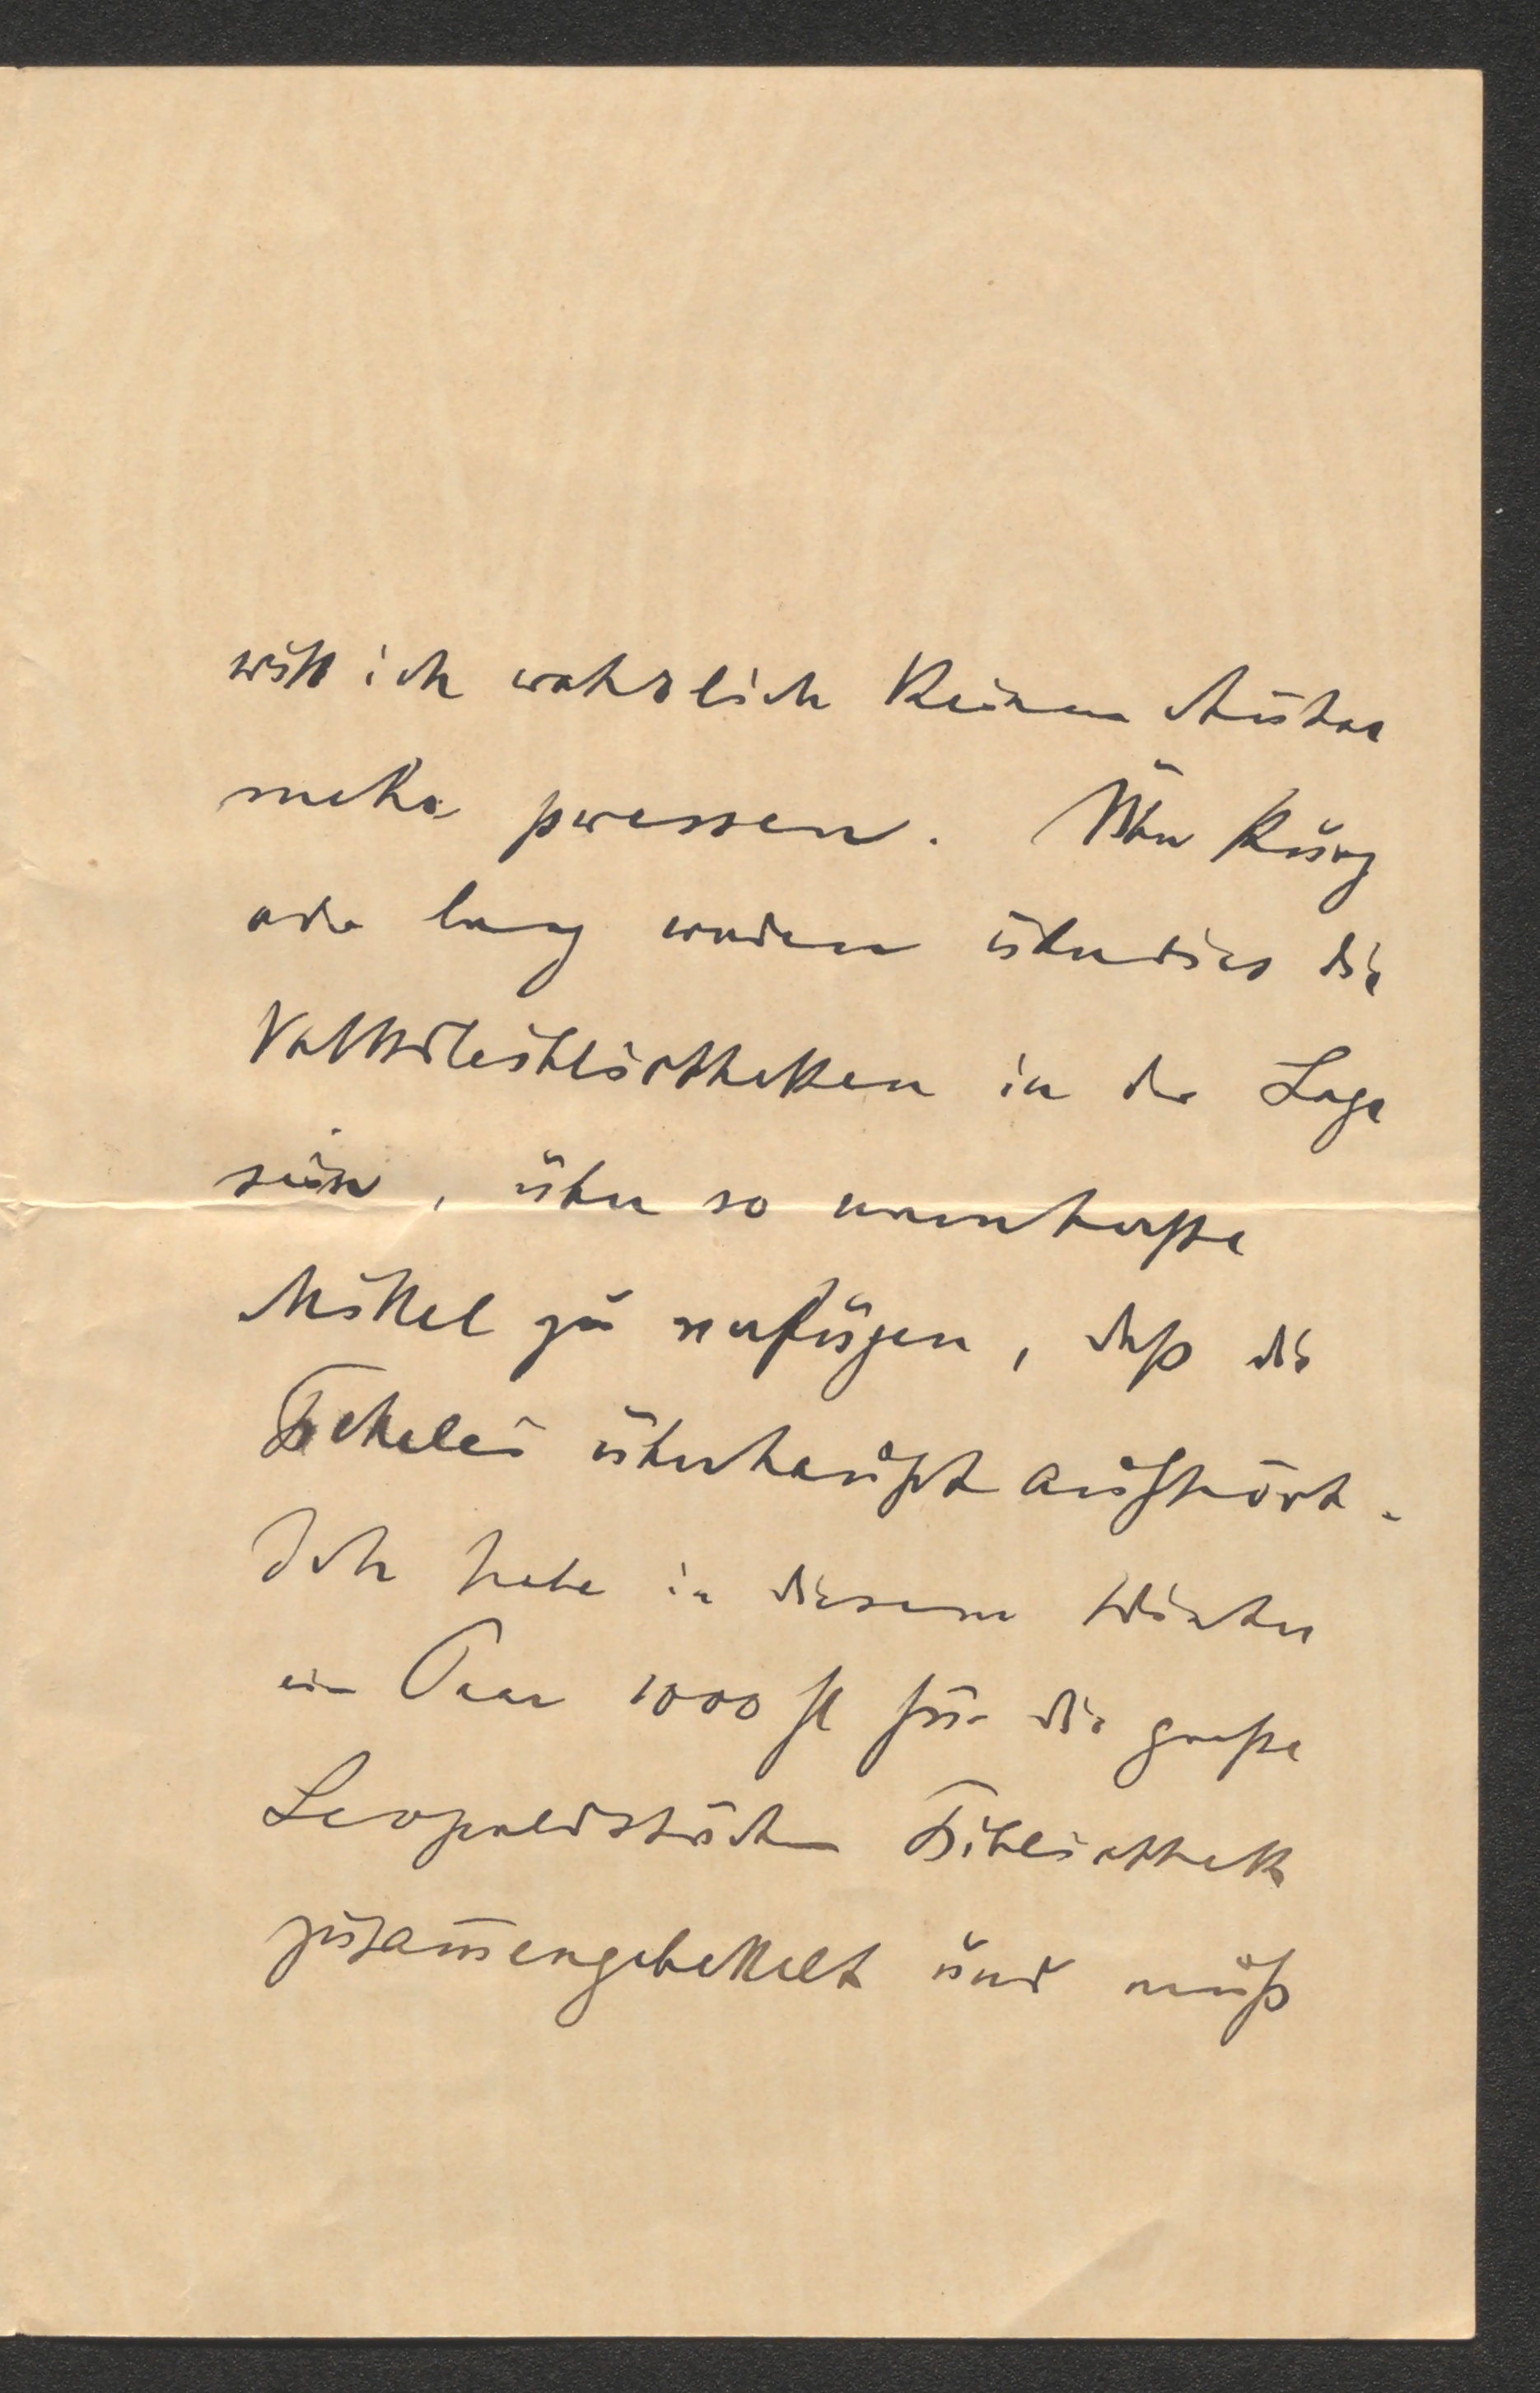 will ich wahrlich keinen Autor
mehr pressen. Über kurz
oder lang werden überdies die
Volksbibliotheken in der Lage
sein, über so namhafte
Mittel zu verfügen, daß die
Bettelei überhaupt aufhört.
Ich habe in diesem Winter
ein Paar 1000 fl für die große
Leopoldstädter Bibliothek
zusammengebettelt und muß